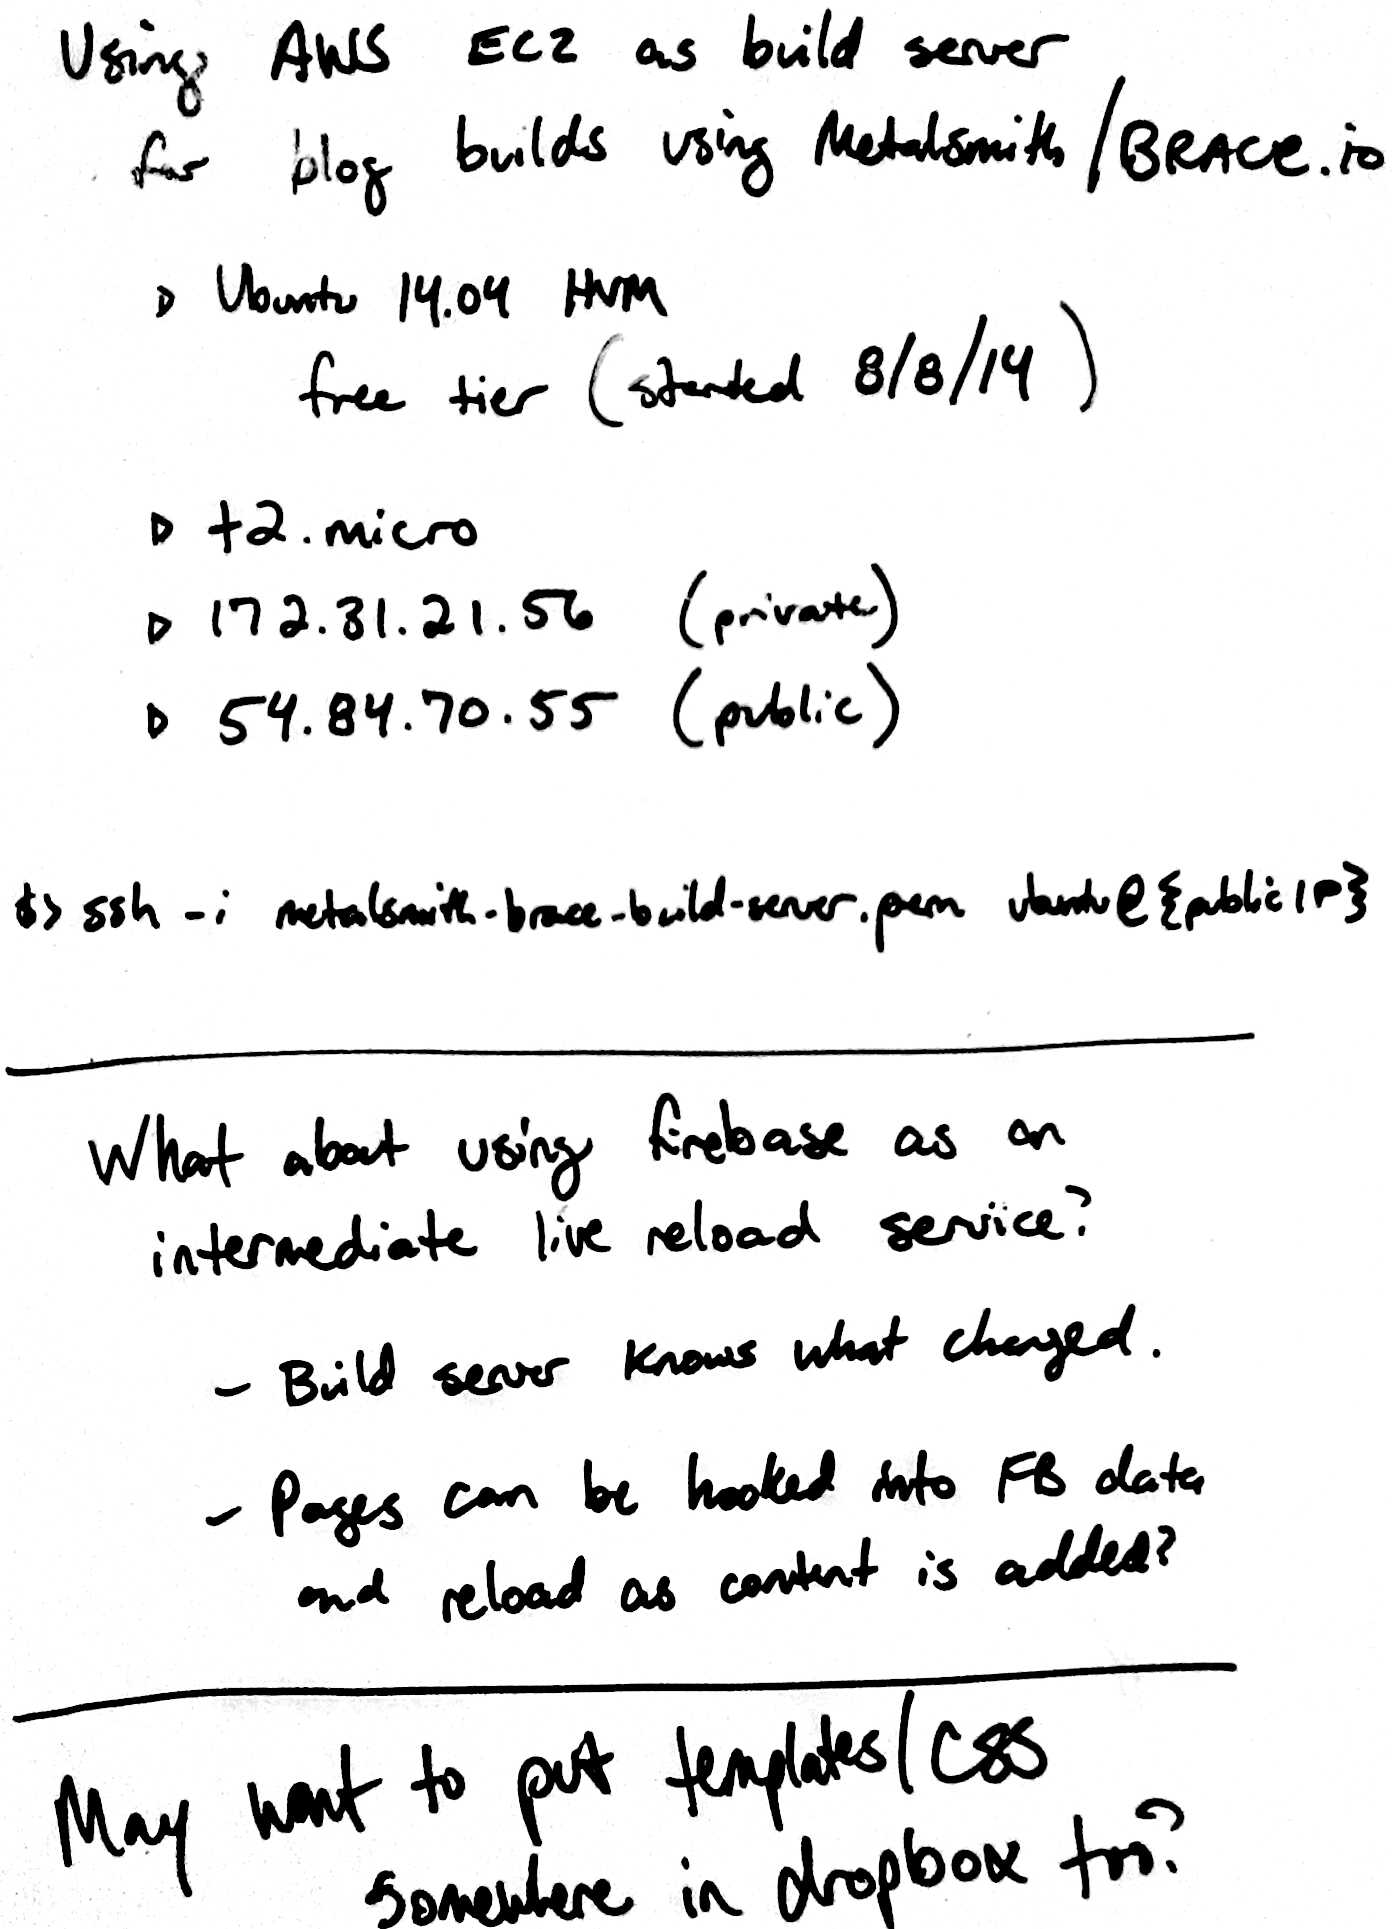 Using AWS EC2 as build server
for blog builds using Metalsmith/BRACE.io
▷ Ubuntu 14.04 HVM
free tier (started 8/8/14)
▷ t2.micro
▷ 172.31.21.56 (private)
▷ 54.84.70.55 (public)
$> ssh -i metalsmith-brace-build-server.pem ubuntu@{public IP}
What about using firebase as an
intermediate live reload service?
- Build server knows what changed.
- Pages can be hooked into FB data
and reload as content is added?
May want to put templates/CSS
somewhere in dropbox too?